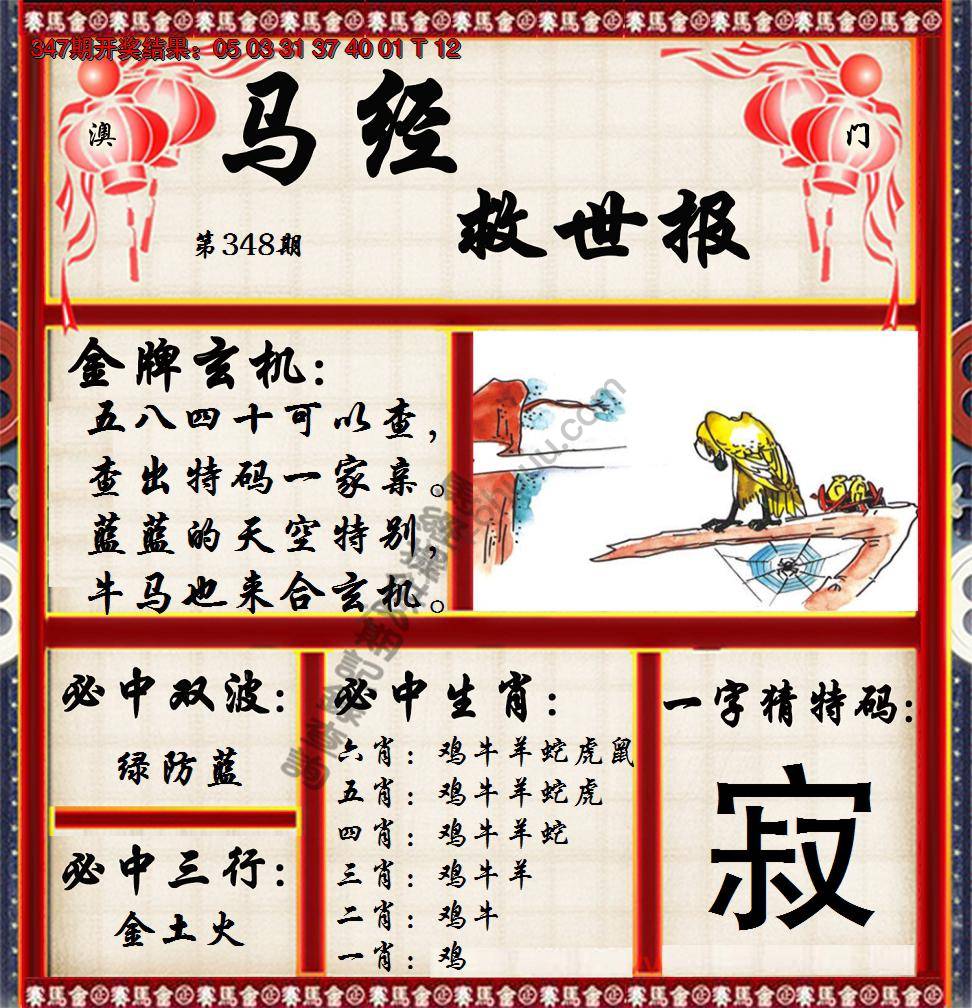 347期开奖结果：05 03 31 37 40 01 T 12
澳
门
马经
救世报
第348期
金牌玄机：
五八四十可以查，
查出特码一家亲。
蓝蓝的天空特别，
牛马也来合玄机。
必中双波：
绿防蓝
必中三行：
金土火
必中生肖：
六肖：鸡牛羊蛇虎鼠
五肖：鸡牛羊蛇虎
四肖：鸡牛羊蛇
三肖：鸡牛羊
二肖：鸡牛
一肖：鸡
一字猜特码：
寂